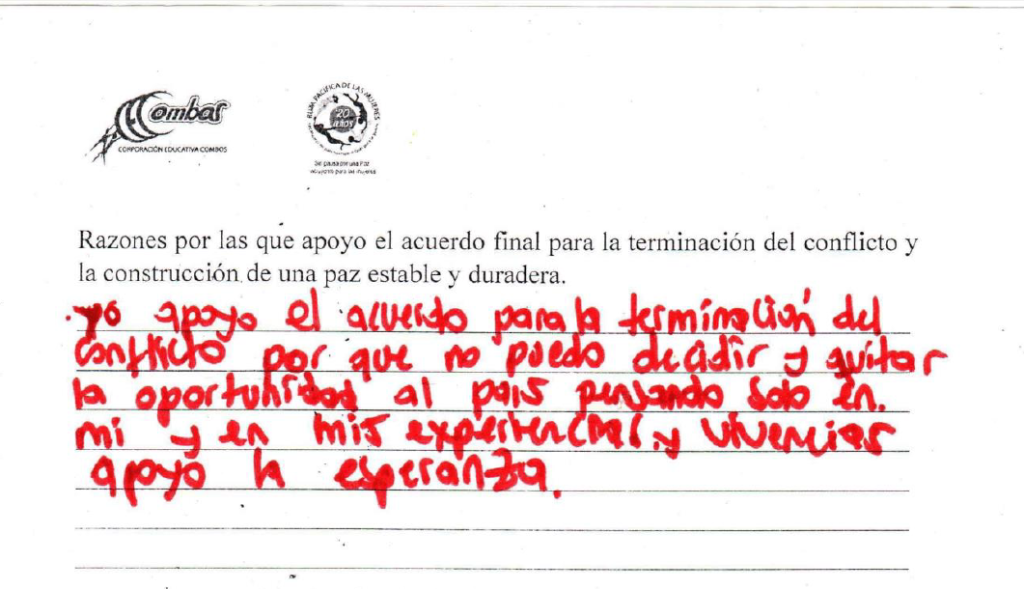 Combos
CORPORACIÓN EDUCATIVA COMBOS
RUTA PACIFICA DE LAS MUJERES
20
AÑOS
Razones por las que apoyo el acuerdo final para la terminación del conflicto y
la construcción de una paz estable y duradera.
.yo apoyo el acuerdo para la terminación del
conflicto por que no puedo decidir y quitar
la oportunidad al pais pensando solo en.
mi y en mis experiencias.y vivencias
apoyo la esperanza.